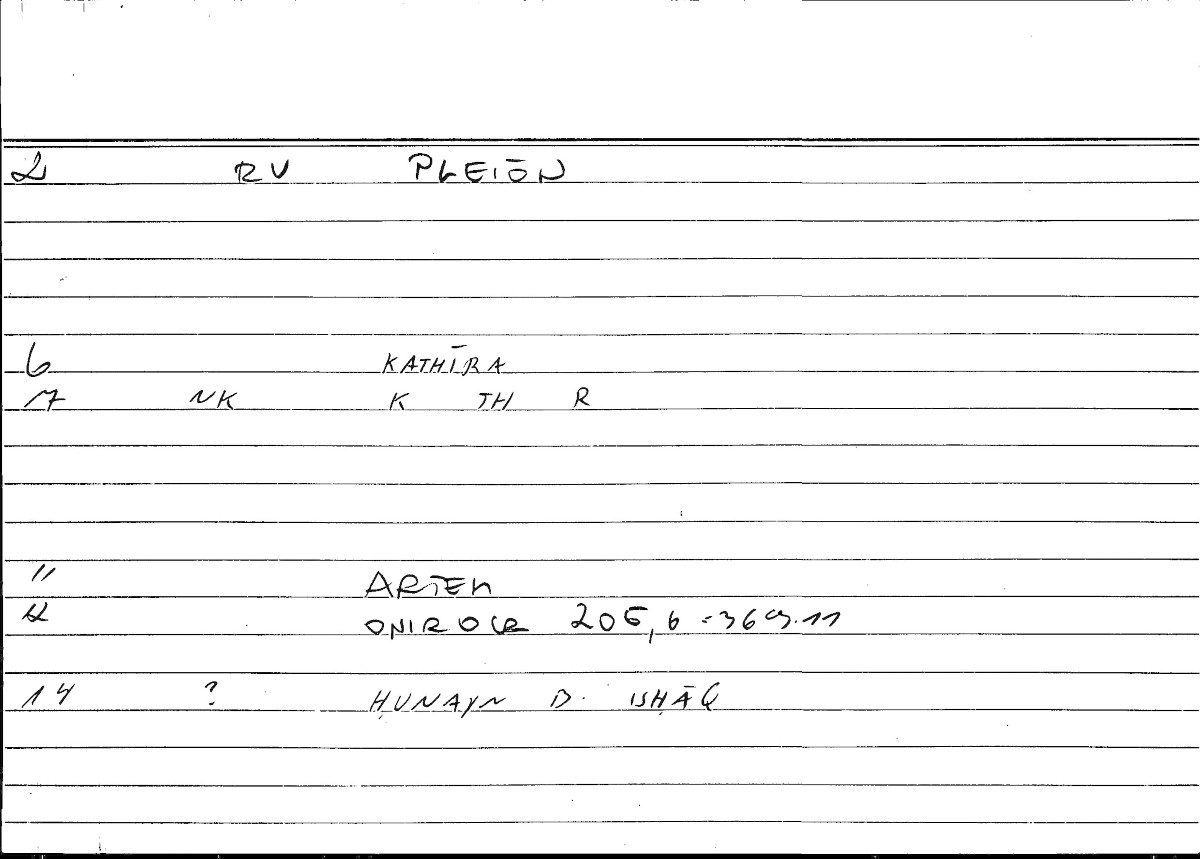 2 RV PLEIŌN
6 KATHĪRA
7 NK K TH R
11 ARTEM
12 ONIROCR 205,6 = 369.11
14 ? ḤUNAYN B. ISḤĀQ